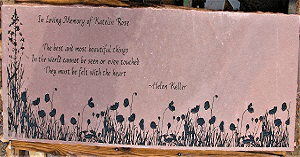 In Loving Memory of Katelin Rose
The best and most beautiful things
In the world cannot be seen or even touched
They must be felt with the heart
~Helen Keller